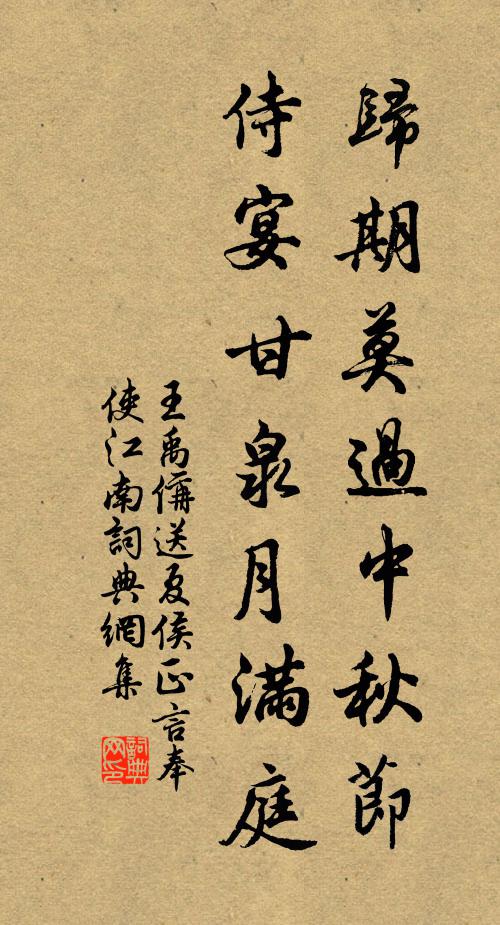 歸期莫過中秋節
侍宴甘泉月滿庭
王禹偁送夏侯正言奉
使江南詞典網集
詞典
网印